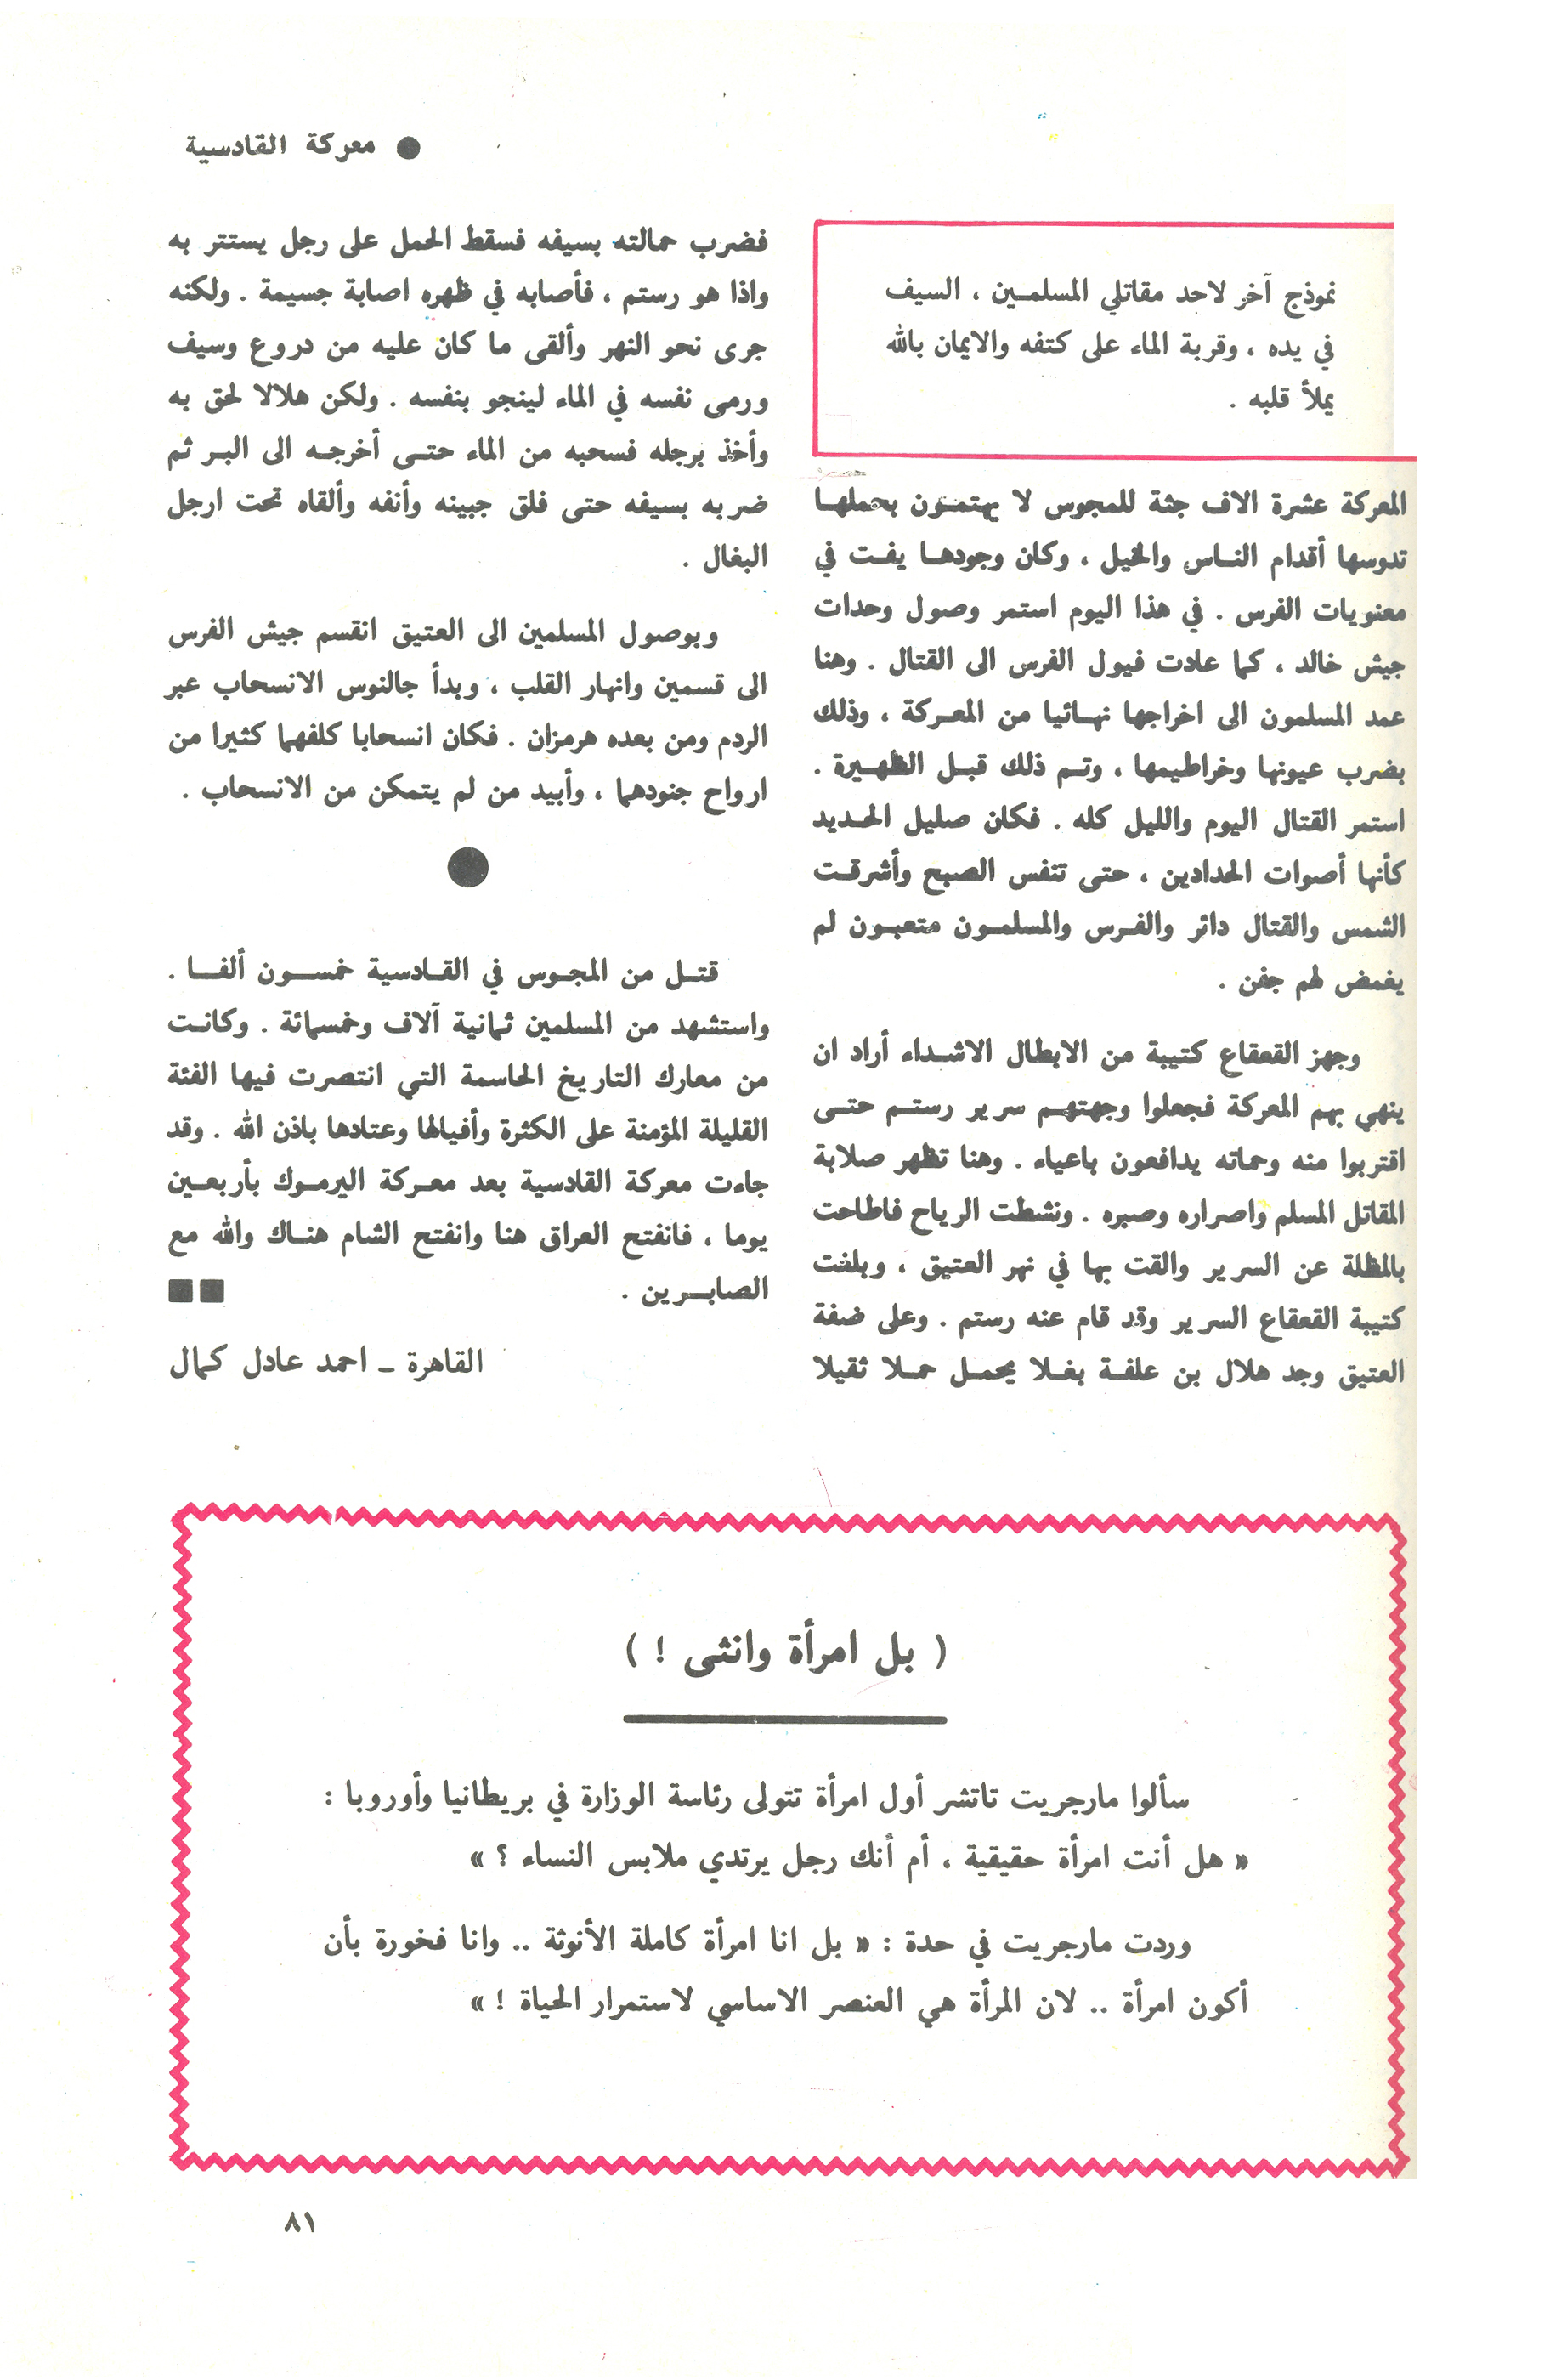 ● معركة القادسية
نموذج آخر لاحد مقاتلي المسلمـين ، السيف
في يده ، وقربة الماء على كتفه والايمان بالله
يملأ قلبه .
المعركة عشرة الاف جثة للمجوس لا يهتمـون بحملهـا
تدوسها أقدام النـاس والخيل ، وكان وجودهـا يفـت في
معنويات الفرس . في هذا اليوم استمر وصول وحدات
جيش خالد ، كما عادت فيول الفرس الى القتال . وهنا
عمد المسلمون الى اخراجها نهـائيا من المعـركة ، وذلك
بضرب عيونها وخراطيمها ، وتـم ذلك قبـل الظهـيرة .
استمر القتال اليوم والليل كله . فكان صليل الحـديد
كأنها أصوات الحدادين ، حتى تنفس الصبح وأشرقـت
الشمس والقتال دائر والفـرس والمسلمـون متعبـون لم
يغمض لهم جفن .
وجهز القعقاع كتيبة من الابطال الاشـداء أراد ان
ينهي بهم المعركة فجعلوا وجهتهـم سرير رستـم حتـى
اقتربوا منه وحماته يدافعون باعياء . وهنا تظهر صلابة
المقاتل المسلم واصراره وصبره . ونشطت الرياح فاطاحت
بالمظلة عن السرير والقت بها في نهر العتيق ، وبلغت
كتيبة القعقاع السرير وقد قام عنه رستم . وعلى ضفة
العتيق وجد هلال بن علفـة بغـلا يحمـل حمـلا ثقيلا
فضرب حمالته بسيفه فسقط الحمل على رجل يستتر به
واذا هو رستم ، فأصابه في ظهره اصابة جسيمة . ولكنه
جرى نحو النهر وألقى ما كان عليه من دروع وسيف
ورمى نفسه في الماء لينجو بنفسه . ولكن هلالا لحق به
وأخذ برجله فسحبه من الماء حتـى أخرجـه الى البـر ثم
ضربه بسيفه حتى فلق جبينه وأنفه وألقاه تحت ارجل
البغال .
وبوصول المسلمين الى العتيق انقسم جيش الفرس
الى قسمين وانهار القلب ، وبدأ جالنوس الانسحاب عبر
الردم ومن بعده هرمزان . فكان انسحابا كلفهما كثيرا من
ارواح جنودهما ، وأبيد من لم يتمكن من الانسحاب .
قتـل من المجـوس في القـادسية خمســون ألفــا .
واستشهد من المسلمين ثمانية آلاف وخمسمائة . وكانـت
من معارك التاريخ الحاسمة التي انتصرت فيها الفئة
القليلة المؤمنة على الكثرة وأفيالها وعتادها باذن الله . وقد
جاءت معركة القادسية بعد معـركة اليرمـوك بأربعـين
يوما ، فانفتح العراق هنا وانفتح الشام هنـاك والله مع
الصابـرين .
القاهرة ـ احمد عادل كمال
( بل امرأة وانثى ! )
سألوا مارجريت تاتشر أول امرأة تتولى رئاسة الوزارة في بريطانيا وأوروبا :
« هل أنت امرأة حقيقية ، أم أنك رجل يرتدي ملابس النساء ؟ »
وردت مارجريت في حدة : « بل انا امرأة كاملة الأنوثة .. وانا فخورة بأن
أكون امرأة .. لان المرأة هي العنصر الاساسي لاستمرار الحياة ! »
٨١